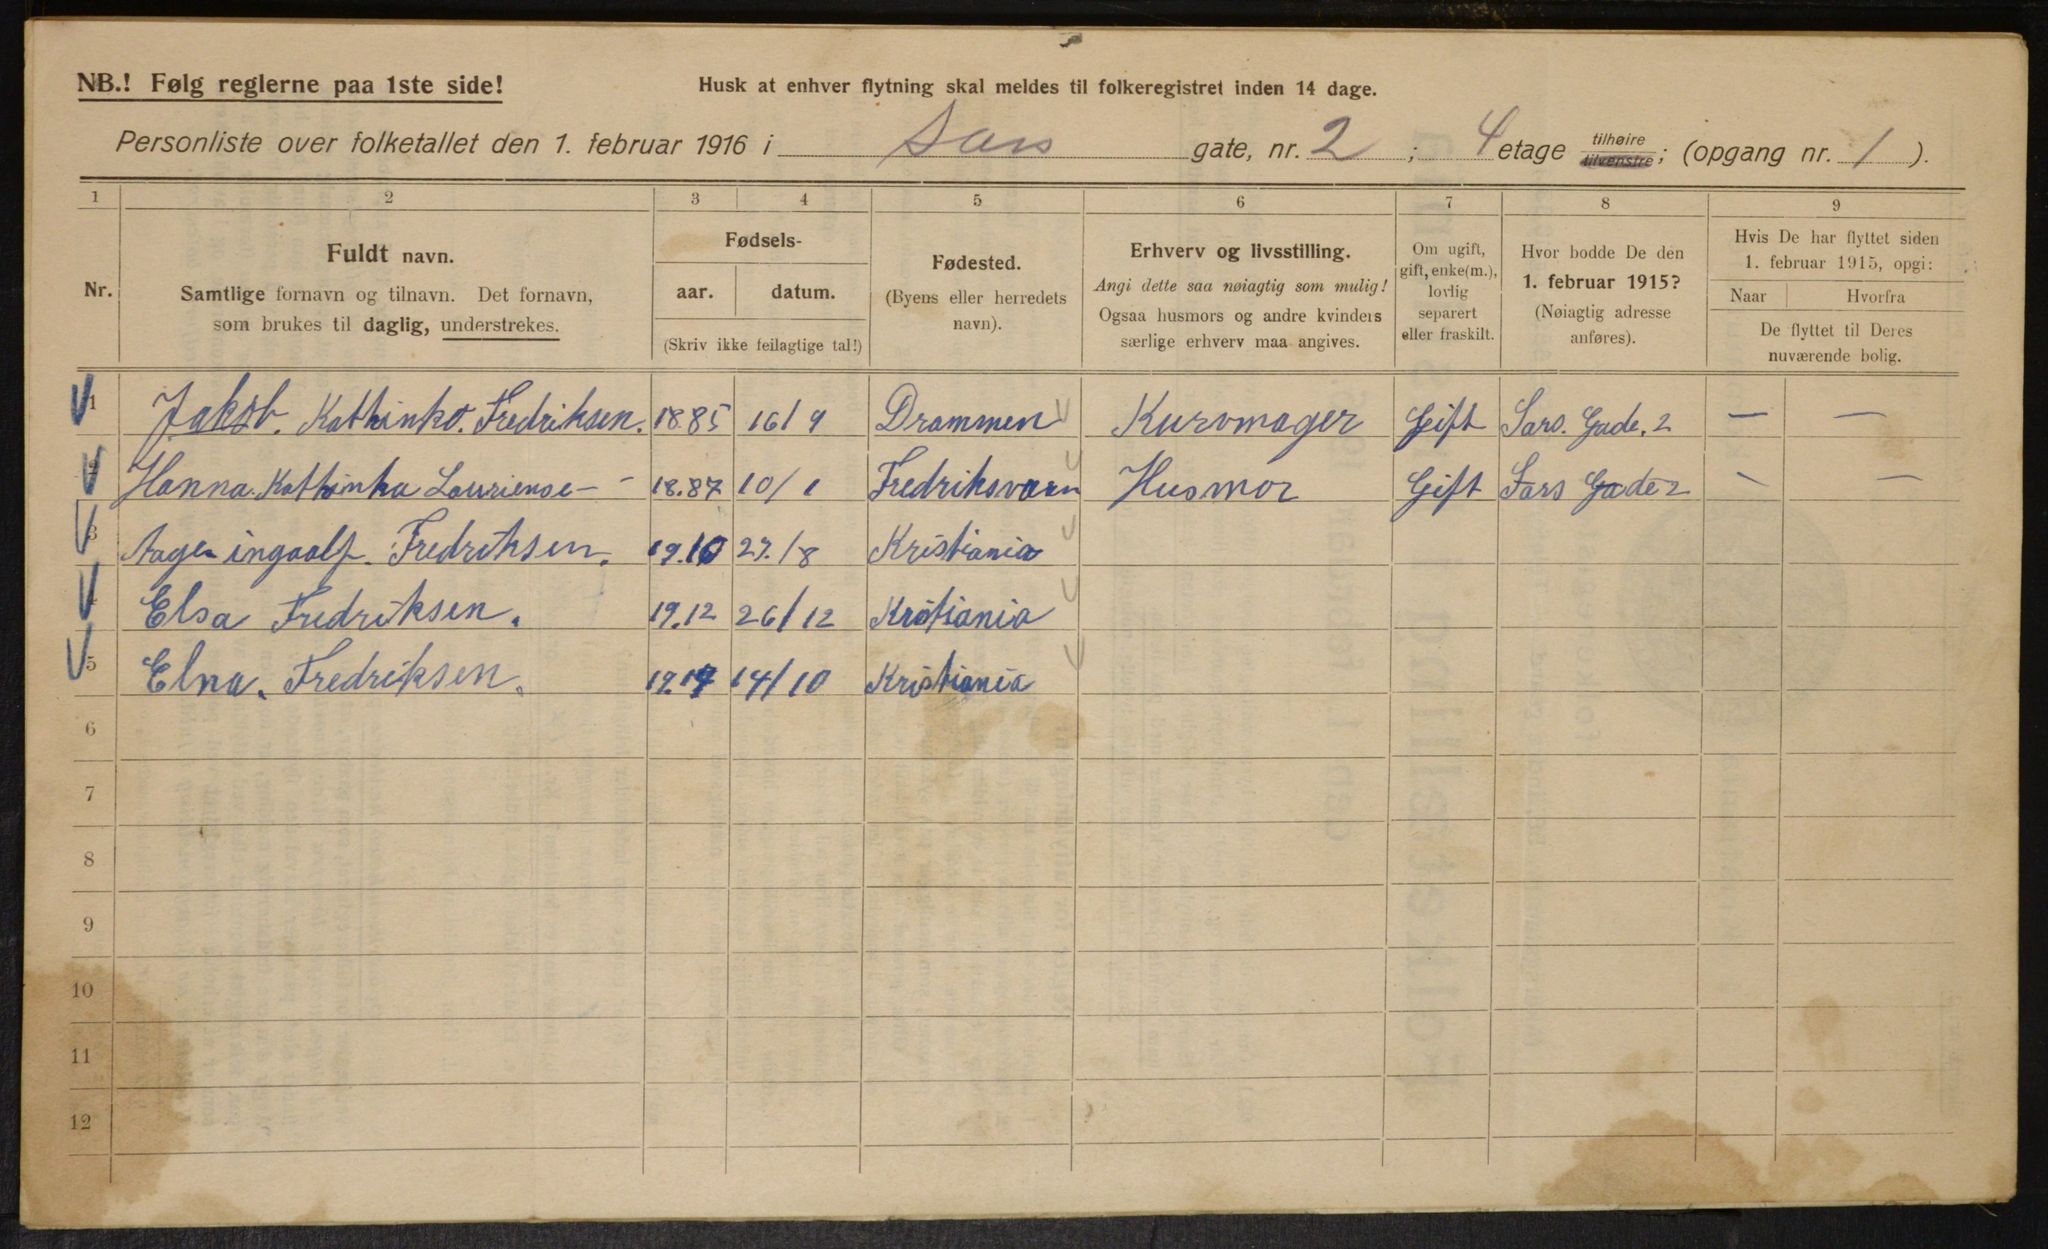 NB.! Følg reglerne paa 1ste side!
Husk at enhver flytning skal meldes til folkeregistret inden 14 dage.
Personliste over folketallet den 1. februar 1916 i Sars gate, nr. 2 ; 4 etage tilhøire tilvenstre; (opgang nr. 1 ).
1 2 3 4 5 6 7 8 9
Nr.
Fuldt navn.
Samtlige fornavn og tilnavn. Det fornavn,
som brukes til daglig, understrekes.
Fødsels-
aar. datum.
(Skriv ikke feilagtige tal!)
Fødested.
(Byens eller herredets
navn).
Erhverv og livsstilling.
Angi dette saa nøiagtig som mulig!
Ogsaa husmors og andre kvinders
særlige erhverv maa angives.
Om ugift,
gift, enke(m.),
lovlig
separert
eller fraskilt.
Hvor bodde De den
1. februar 1915?
(Nøiagtig adresse
anføres).
Hvis De har flyttet siden
1. februar 1915, opgi:
Naar Hvorfra
De flyttet til Deres
nuværende bolig.
1 Jakob. Kathinko. Fredriksen. 18.85 16/9 Drammen Kurvmager Gift Sars. Gade. 2 — —
2 Hanna. Kathinka Lauriense - - 18.87 10/1 Fredriksværn Husmor Gift Sars Gade 2 — —
3 Aage ingoolf. Fredriksen. 19.10 27./8 Kristiania
4 Elsa Fredriksen. 19.12 26/12 Kristiania
5 Elna. Fredriksen. 19.14 14/10 Kristiania
6
7
8
9
10
11
12